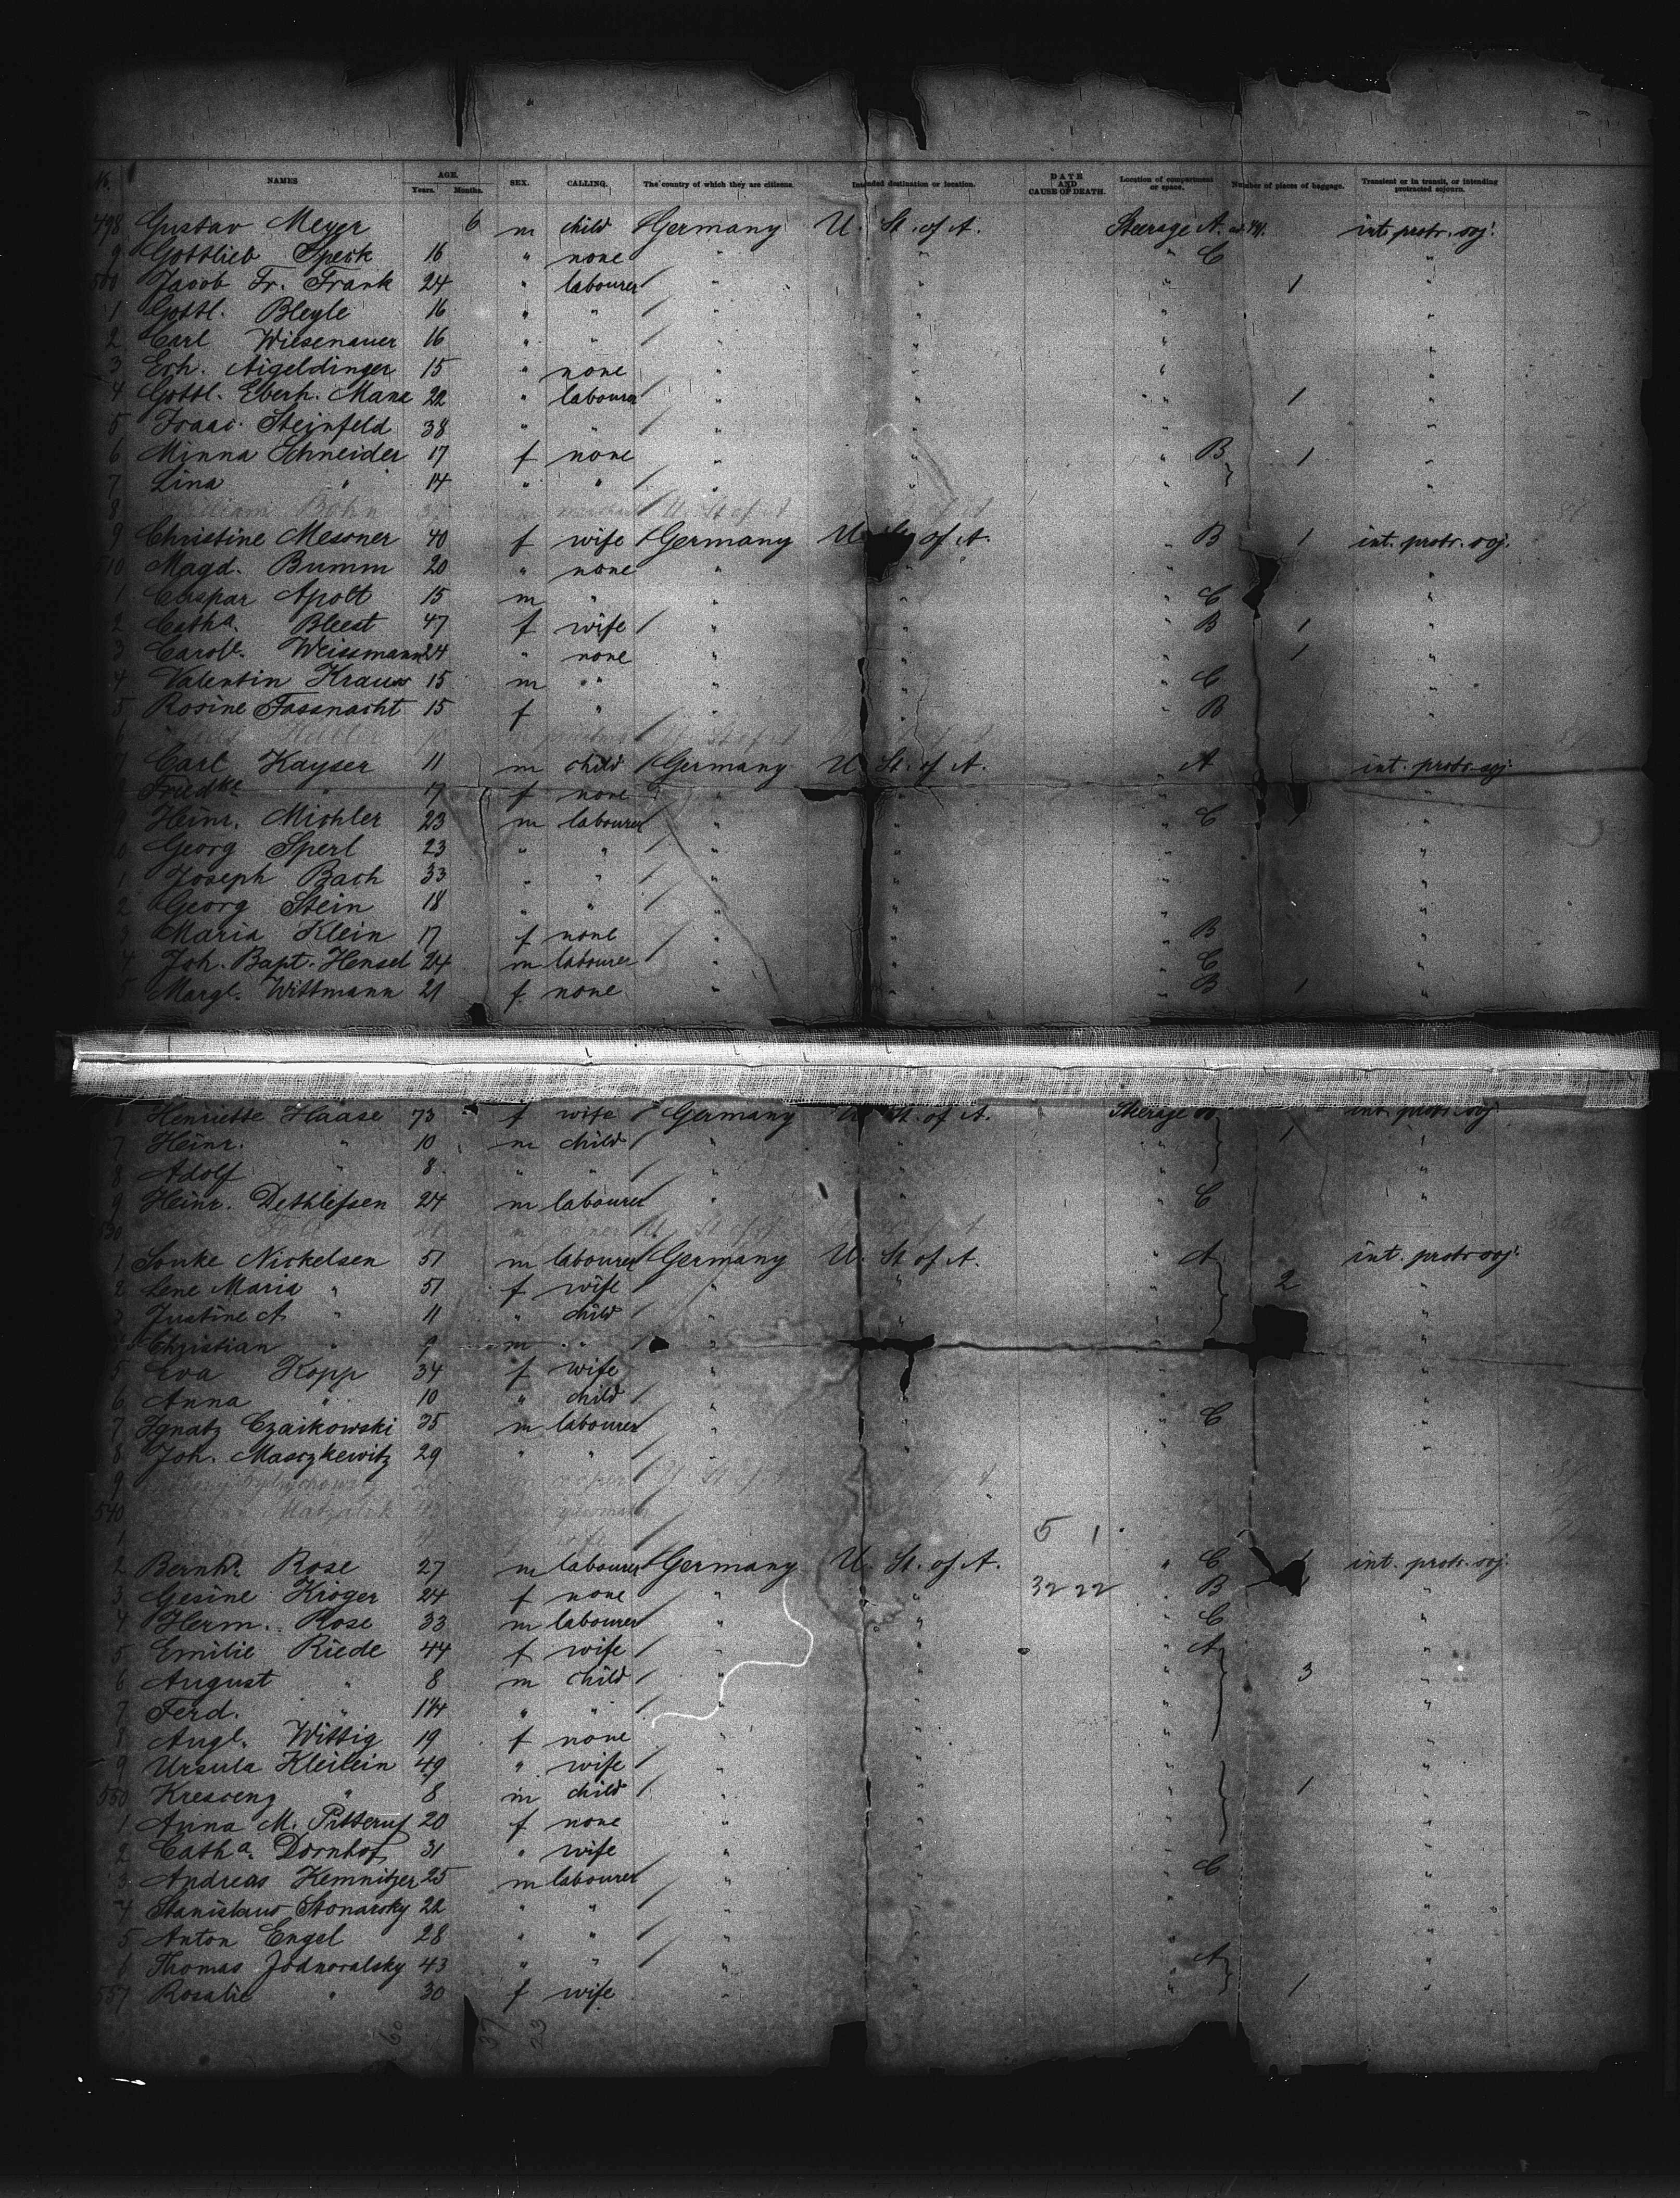 No. NAMES AGE. Years. Months. SEX. CALLING. The country of which they are citizens. Intended destination or location. DATE AND CAUSE OF DEATH. Location of compartment or space. Number of pieces of baggage. Transient or in transit, or intending protracted sojourn.
498 Gustav Meyer 6 m child Germany U. St. of A. Steerage A. int. protr. soj.
9 Gottlieb Speck 16 " none " " " C "
500 Jacob Fr. Frank 24 " labourer " " " 1 "
1 Gottl. Bleyle 16 " " " " " "
2 Carl Wiesenauer 16 " " " " " "
3 Erh. Aigeldinger 15 " none " " " "
4 Gottl. Eberh. Manz 22 " labourer " " " 1 "
5 Isaac Steinfeld 38 " " " " " "
6 Minna Schneider 17 f none " " " B 1 "
7 Lina " 14 " " " " " "
8 William Bohn U. St. of A.
9 Christine Messner 40 f wife Germany U. St. of A. " B 1 int. protr. soj.
10 Magd. Bumm 20 " none " " "
1 Caspar Apolt 15 m " " " " C "
2 Catha. Bleest 47 f wife " " " B 1 "
3 Carole. Weissmann 24 " none " " 1 "
4 Valentin Kraus 15 m " " " " C "
5 Rosine Fassnacht 15 f " " " " B "
6 U. St. of A.
7 Carl Kayser 11 m child Germany U. St. of A. " A int. protr. soj.
Friedke " 17 f none " " "
9 Heinr. Michler 23 m labourer " " " C 1 "
0 Georg Sperl 23 " " " " " "
1 Joseph Bach 33 " " " " " "
2 Georg Stein 18 " " " " " "
3 Maria Klein 17 f none " " " B "
4 Joh. Bapt. Hensel 24 m labourer " " " C "
5 Margt. Wittmann 21 f none " " " B 1 "
6 Henriette Haase 73 f wife Germany U. St. of A. Steerage B int. protr. soj.
7 Heinr. " 10 m child " " " 1 "
8 Adolf " 8 " " " " " "
9 Heinr. Dethlefsen 24 m labourer " " " C "
530 U. St. of A.
1 Sonke Nickelsen 51 m labourer Germany U. St. of A. " A int. protr. soj.
2 Lene Maria " 51 f wife " " " 2 "
3 Justine A. " 11 " child " " " "
4 Christian " 9 m " " " "
5 Eva Kopp 34 f wife " " " "
6 Anna " 10 " child " " " "
7 Ignatz Czaikowski 35 m labourer " " " C "
8 Joh. Masczkewitz 29 " " " " " "
9 U. St. of A.
540 Matzalik
1 5 1
2 Bernhd. Rose 27 m labourer Germany U. St. of A. " C int. protr. soj.
3 Gesine Kröger 24 f none " " 32 22 " B "
4 Herm. Rose 33 m labourer " " " C "
5 Emilie Riede 44 f wife " " " A "
6 August " 8 m child " " " 3 "
7 Ferd. " " " " " " "
8 Augt. Wittig 19 f none " " " "
9 Ursula Kleilein 49 " wife " " " "
550 Krescenz " 8 m child " " " 1 "
1 Anna M. Pitteruf 20 f none " " " "
2 Catha. Dornhof 31 " wife " " " "
3 Andreas Kemnitzer 25 m labourer " " " C "
4 Stanislaus Stonarsky 22 " " " " " "
5 Anton Engel 28 " " " " " "
6 Thomas Jodnoralsky 43 " " " " " A "
557 Rosalie " 30 f wife " " " 1 "
60 37 23